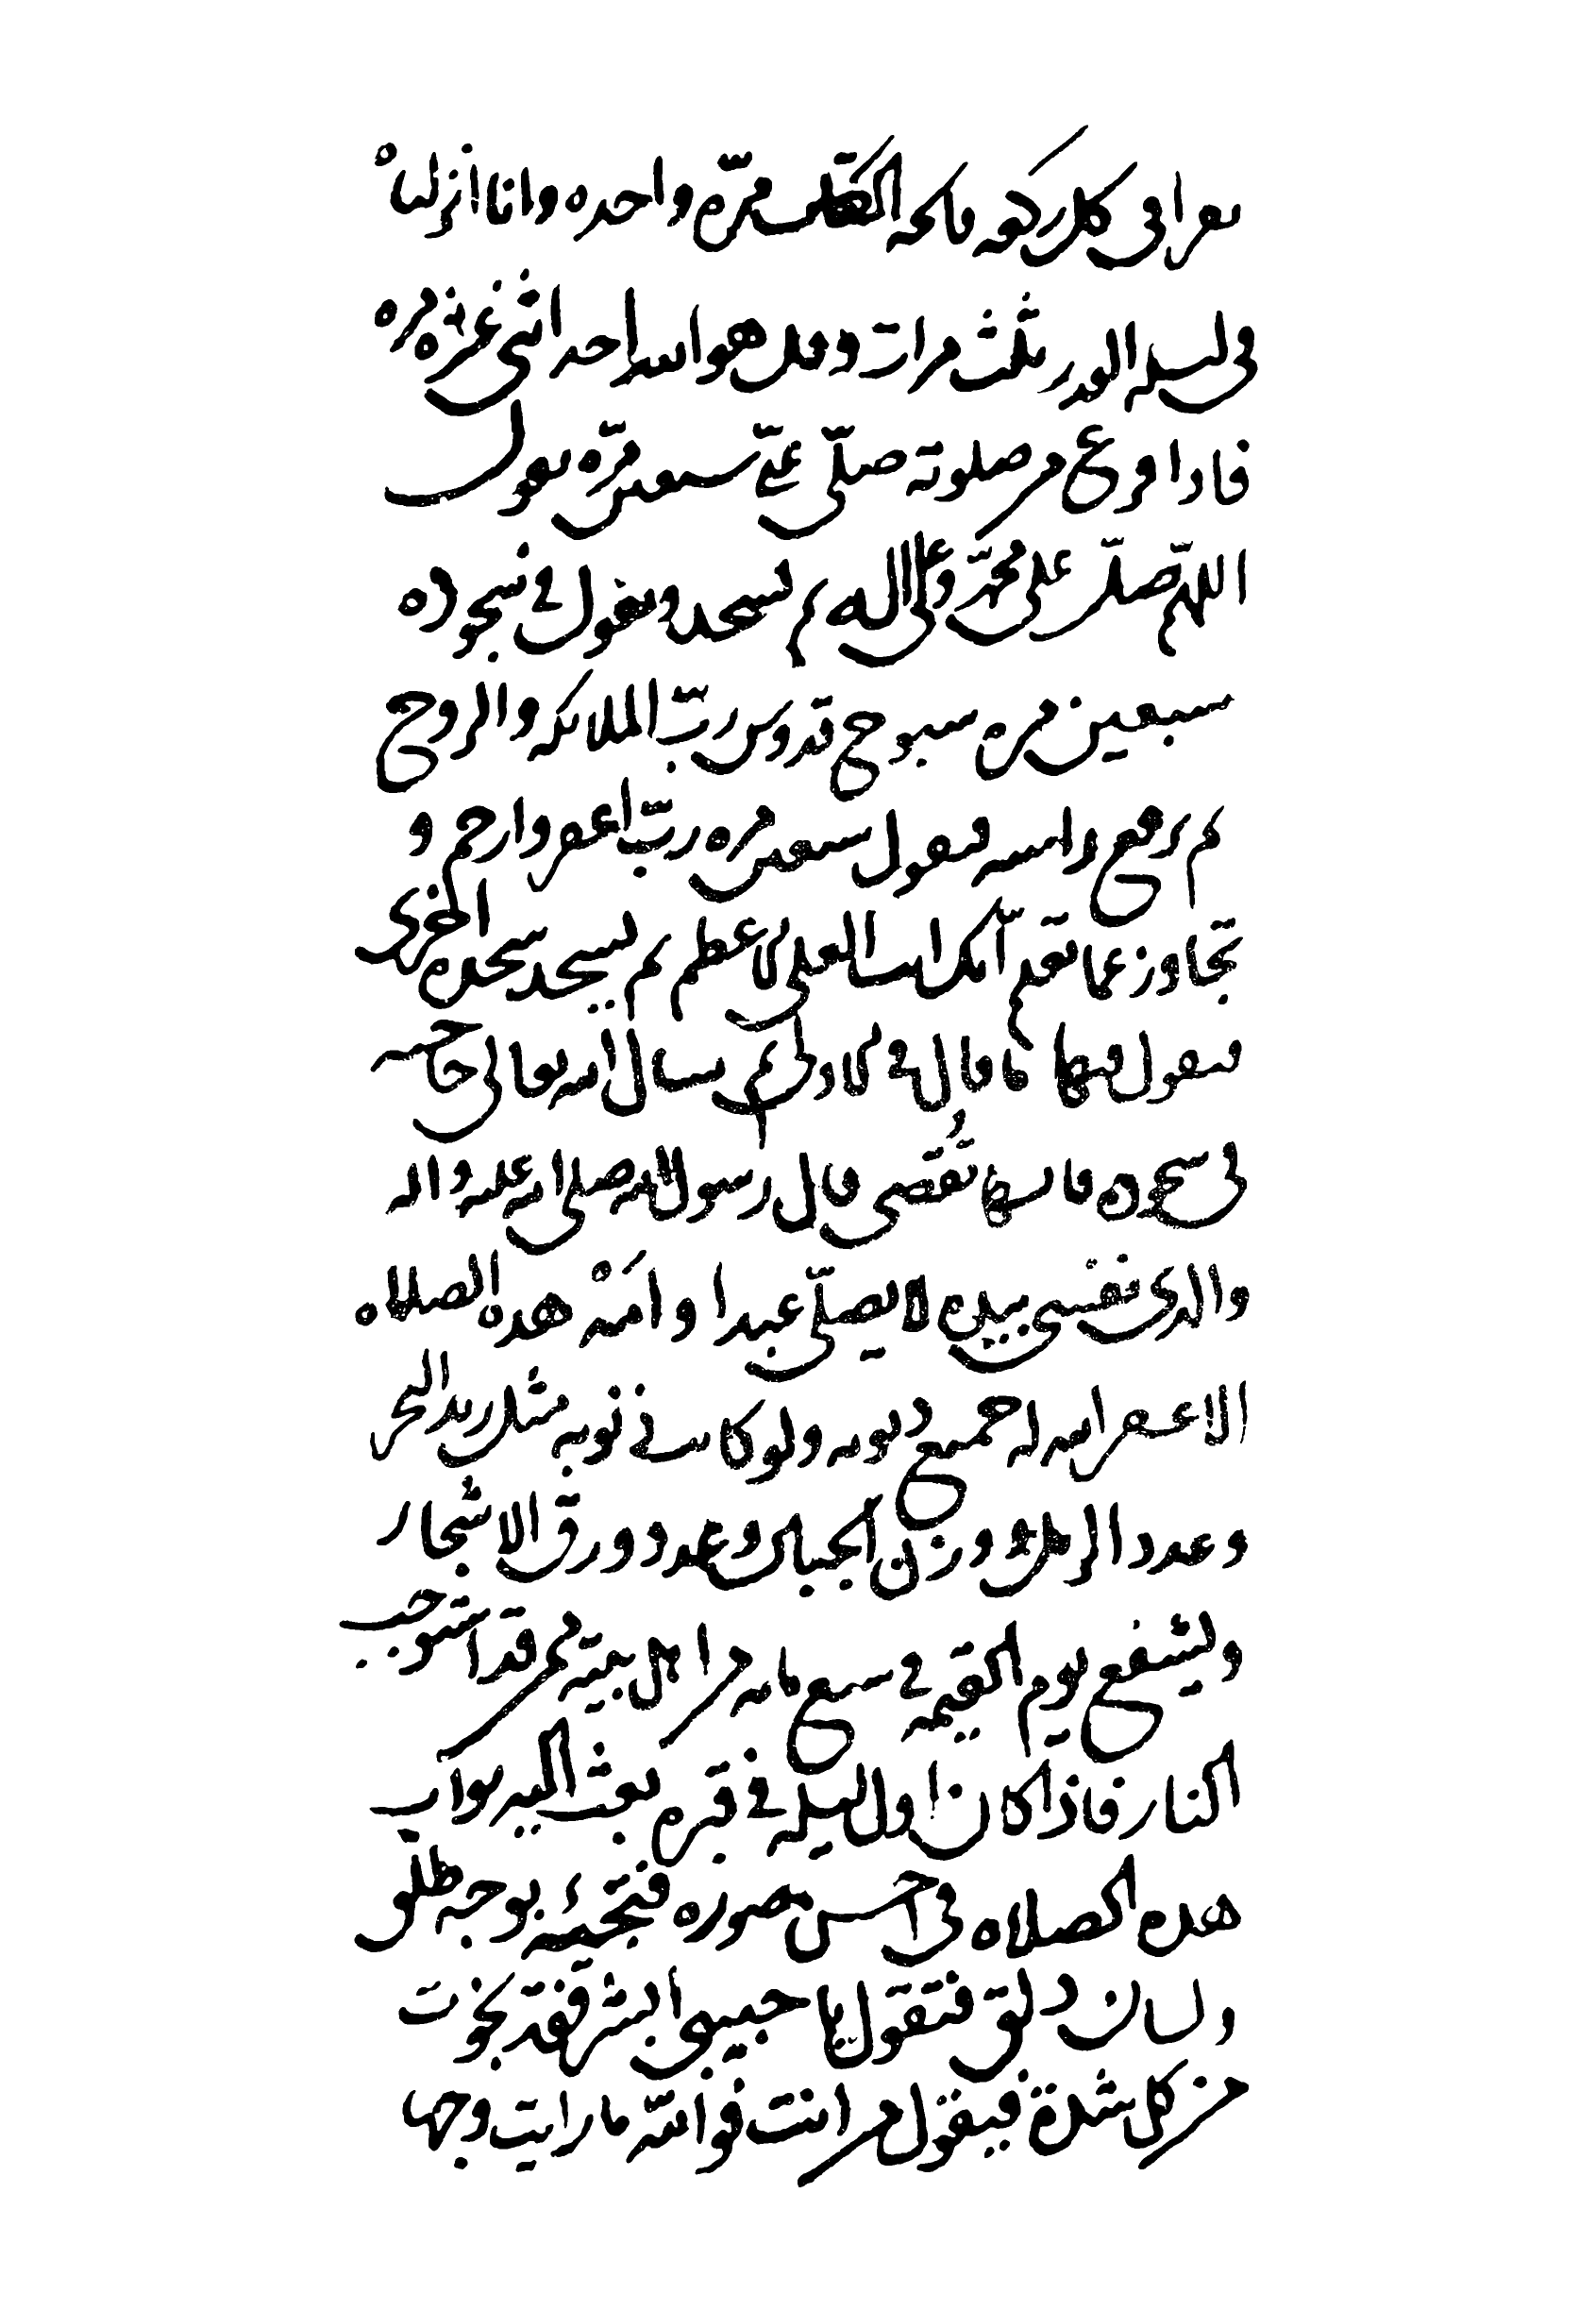 يقرا في كل ركعه فاتحه الكتاب مرّه واحده وانا انزلناه
في ليله القدر ثلث مرات وقل هو الله احد اثنى عشره مره
فاذا فرغ من صلوته صلّى علىّ سبعين مرّه يقول
اللهمّ صلّ على محمّد وعلى اله ثم يسجد ويقول في سجوده
سبعين مره سبوح قدوس ربّ الملائكه والروح
ثم يرفع راسه فيقول سبعين مره ربّ اغفر وارحم و
تجاوز عما تعلم انّك انت العلى الاعظم ثم يسجد سجده اخرى
فيقول فيها ما قال في الاولى ثم يسال الله تعالى حاجته
في سجوده فانها تُقضى قال رسول الله صلى الله عليه واله
والذى نفسى بيده لا يصلّى عبدا وامَهْ هذه الصلاه
الا غفر الله له جميع ذنوبه ولو كانت ذنوبه مثل زبد البحر
وعدد الرمل ووزن الجبال وعدد ورق الاشجار
ويشفع يوم القيمه في سبع مائه من اهل بيته ممن قد استوجب
النار فاذا كان اول ليله في قبره بعث اليه ثواب
هذه الصلاه في احسن صوره فتجيئه بوجه طلق
ولسان ذلق فتقول يا حبيبى ابشر فقد نجوت
من كل شدة فيقول من انت فوالله ما رايت وجها